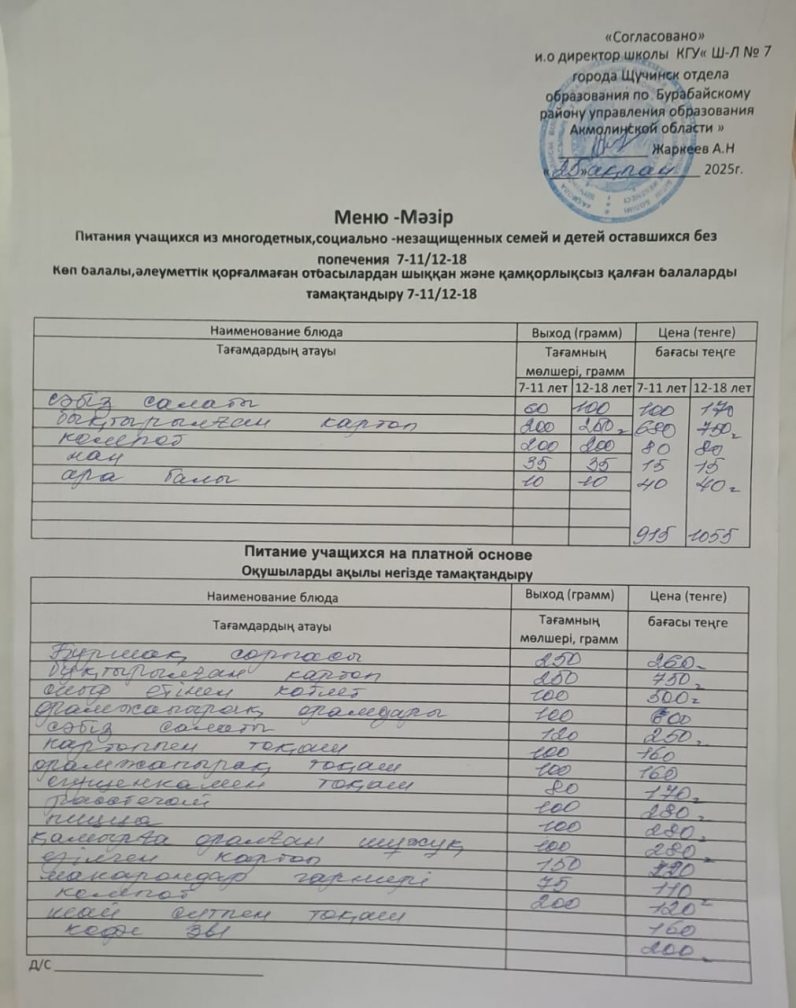 «Согласовано»
и.о директор школы КГУ« Ш-Л № 7
города Щучинск отдела
образования по Бурабайскому
району управления образования
Акмолинской области »
Жаркеев А.Н
«25» ақпан 2025г.
Меню -Мәзір
Питания учащихся из многодетных,социально -незащищенных семей и детей оставшихся без
попечения 7-11/12-18
Көп балалы,әлеуметтік қорғалмаған отбасылардан шыққан және қамқорлықсыз қалған балаларды
тамақтандыру 7-11/12-18
Наименование блюда Выход (грамм) Цена (тенге)
Тағамдардың атауы Тағамның мөлшері, грамм бағасы теңге
7-11 лет 12-18 лет 7-11 лет 12-18 лет
сәбіз салаты 60 100 100 170
бұқтырылған картоп 200 250 680 750
компот 200 200 80 80
нан 35 35 15 15
ара балы 10 10 40 40
915 1055
Питание учащихся на платной основе
Оқушыларды ақылы негізде тамақтандыру
Наименование блюда Выход (грамм) Цена (тенге)
Тағамдардың атауы Тағамның мөлшері, грамм бағасы теңге
Бұршақ сорпасы 250 260
бұқтырылған картоп 250 750
сиыр етінен котлет 100 500
орамжапырақ орамдары 100 600
сәбіз салаты 120 250
картоппен тоқаш 100 160
орамжапырақ тоқаш 100 160
сгущенкамен тоқаш 80 170
100 280
пицца 100 280
қамырға оралған шұжық 100 280
езілген картоп 150
макарондар гарнирі 75 110
компот 200 120
шай сүтпен тоқаш 160
кофе 3в1 200
Д/С